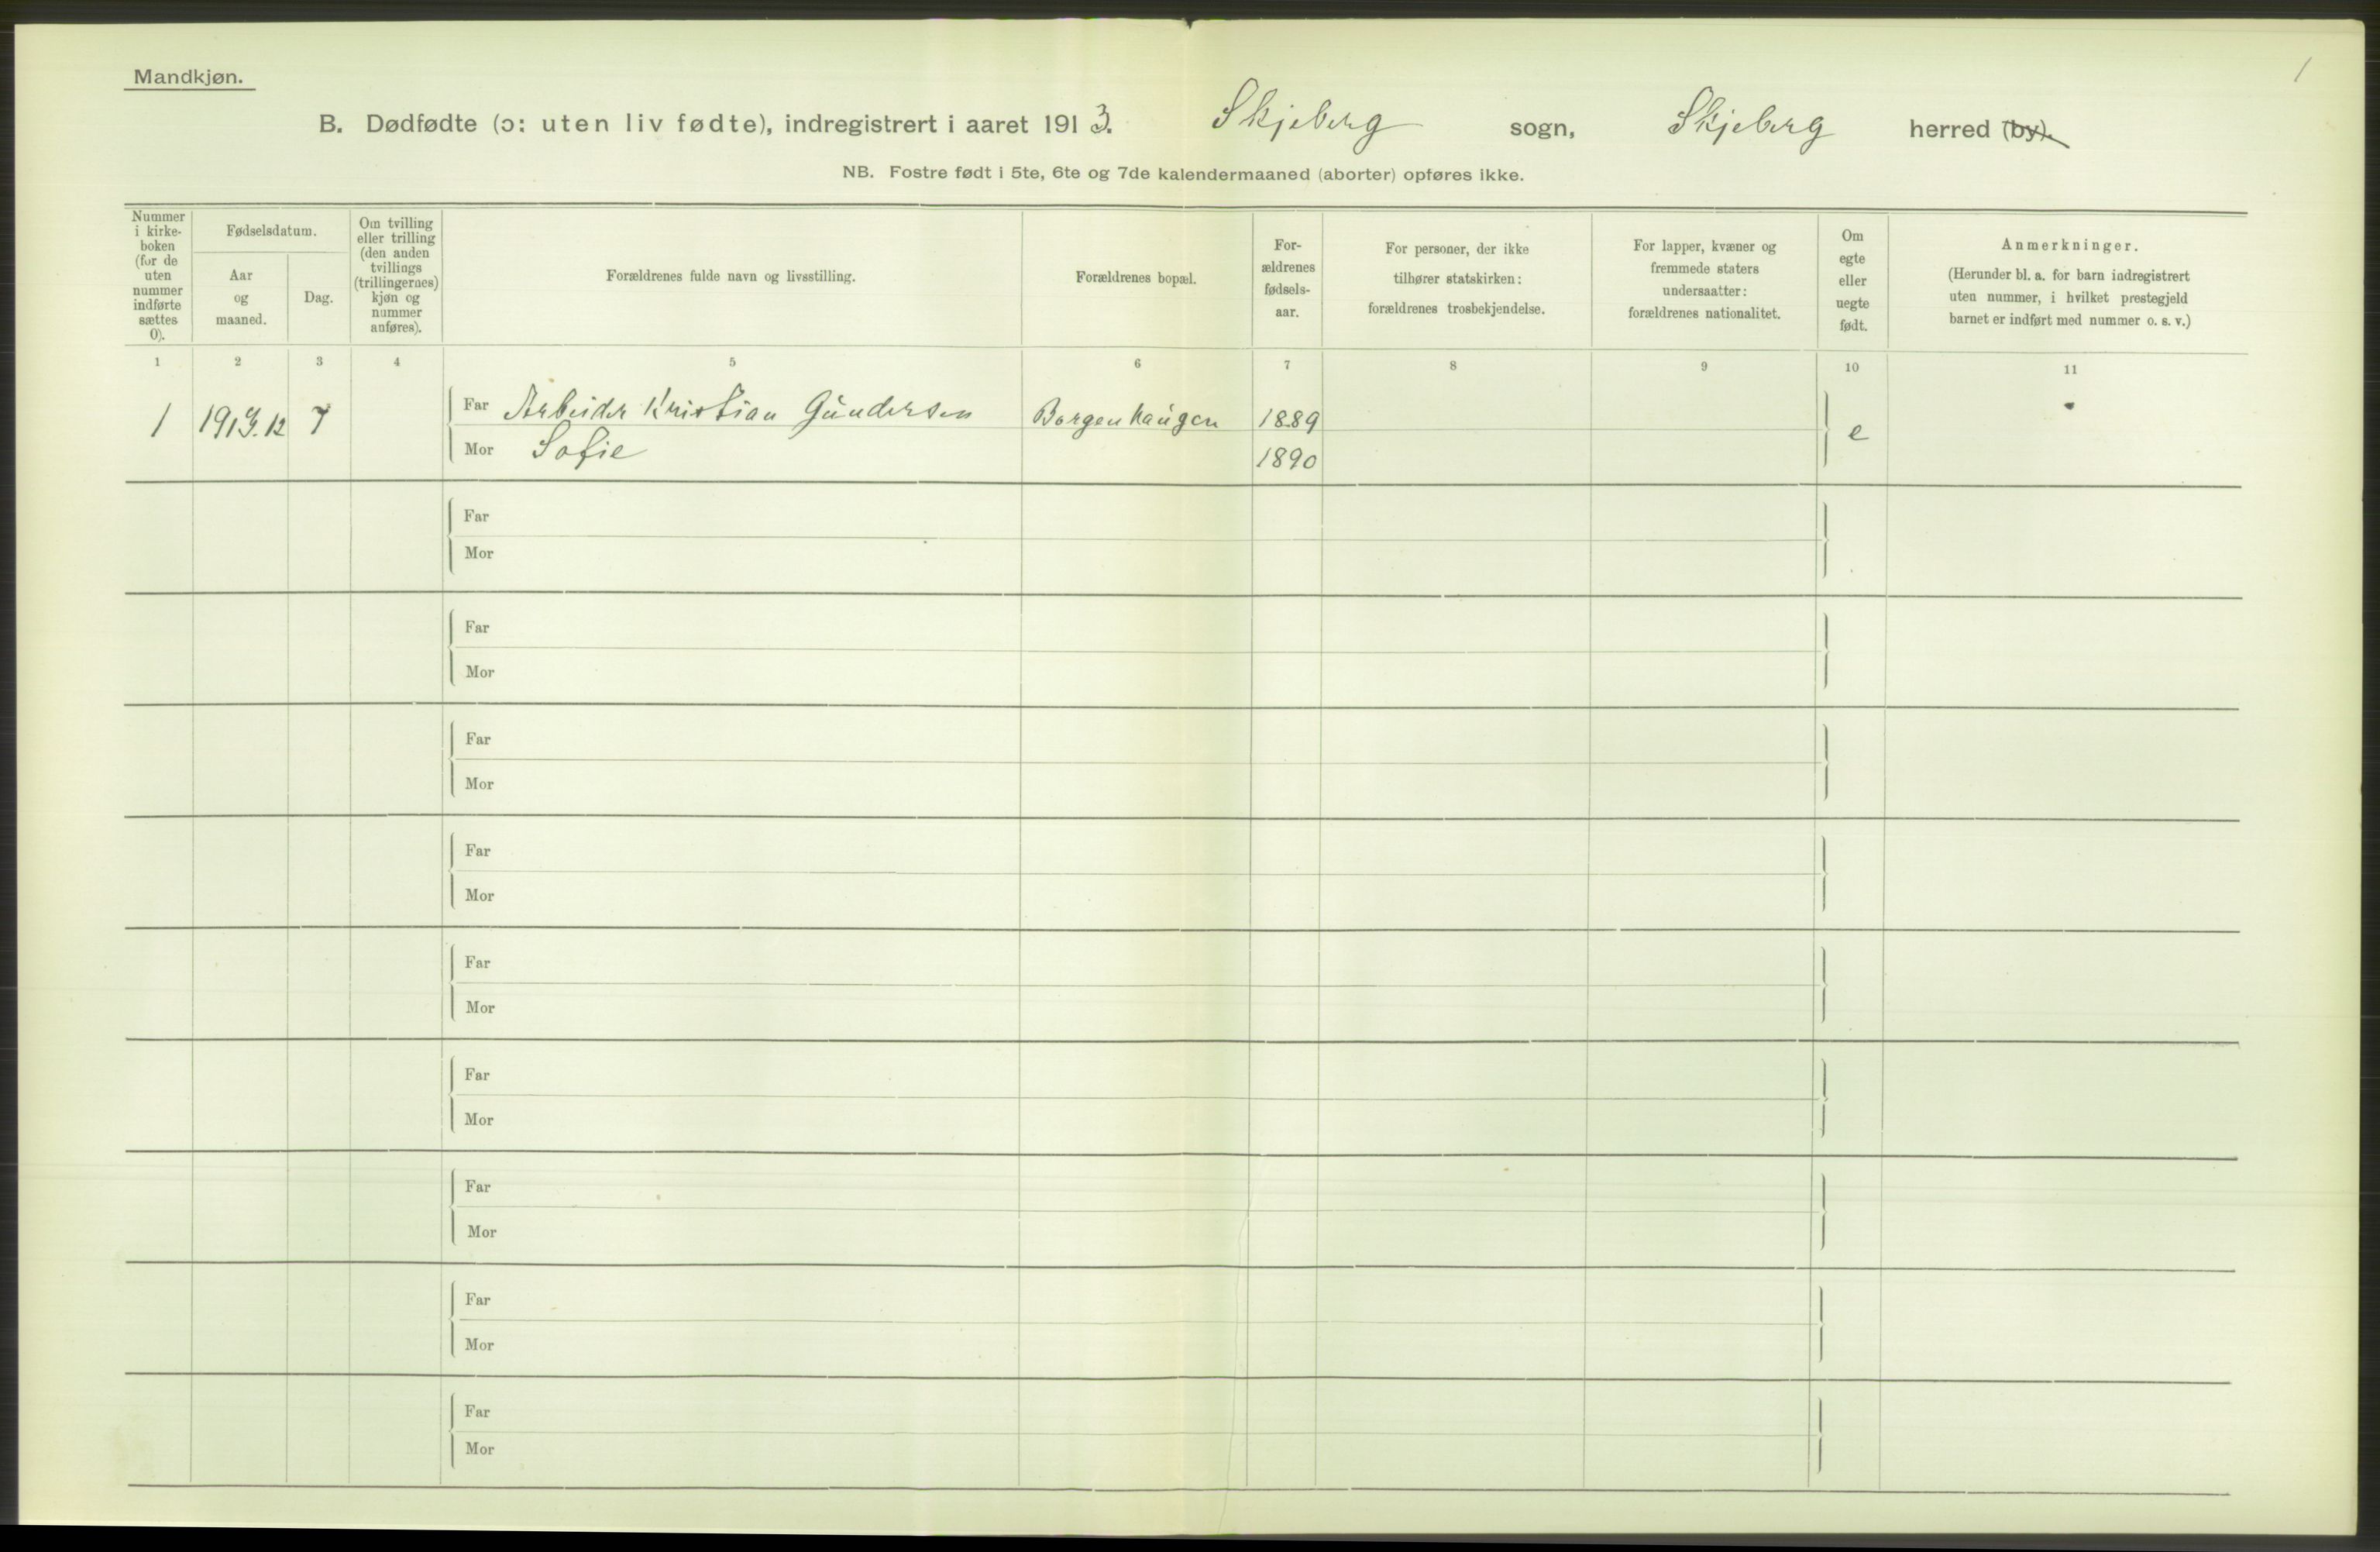 1
Mandkjøn.
B. Dødfødte (ɔ: uten liv fødte), indregistrert i aaret 1913. Skjeberg sogn, Skjeberg herred (by).
NB. Fostre født i 5te, 6te og 7de kalendermaaned (aborter) opføres ikke.
Nummer
i kirke-
boken
(for de
uten
nummer
indførte
sættes
0).
Fødselsdatum.
Aar
og
maaned.
Dag.
Om tvilling
eller trilling
(den anden
tvillings
(trillingernes)
kjøn og
nummer
anføres).
Forældrenes fulde navn og livsstilling.
Forældrenes bopæl.
For-
ældrenes
fødsels-
aar.
For personer, der ikke
tilhører statskirken:
forældrenes trosbekjendelse.
For lapper, kvæner og
fremmede staters
undersaatter:
forældrenes nationalitet.
Om
egte
eller
uegte
født.
Anmerkninger.
(Herunder bl. a. for barn indregistrert
uten nummer, i hvilket prestegjeld
barnet er indført med nummer o. s. v.)
1 2 3 4 5 6 7 8 9 10 11
1 12 7 Far Arbeider Kristian Gundersen Borgenhaugen 1889 e
Mor Sofie 1890
Far
Mor
Far
Mor
Far
Mor
Far
Mor
Far
Mor
Far
Mor
Far
Mor
Far
Mor
Far
Mor